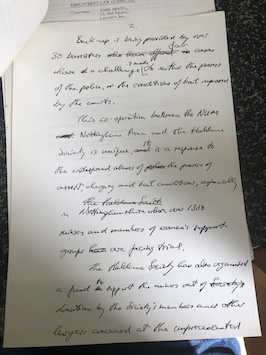 EMPLOYMENT LAW COMMITTEE
2
Back-up is being provided by over
30 barristers who have offered for cases
where a challenge is made to either the powers
of the police, or the conditions of bail imposed
by the courts.
This co-operation between the NUM
Nottingham Area and the Haldane
Society is unique, it is a response to
the widespread abuse of police the powers of
arrest, charging and bail conditions, especially
the Haldane Society
in Nottinghamshire where over 1300
miners and members of women's support
groups have are facing trial.
The Haldane Society has also organised
a fund to support the miners out of Society's
donations by the Society's members and other
lawyers concerned at the unprecedented